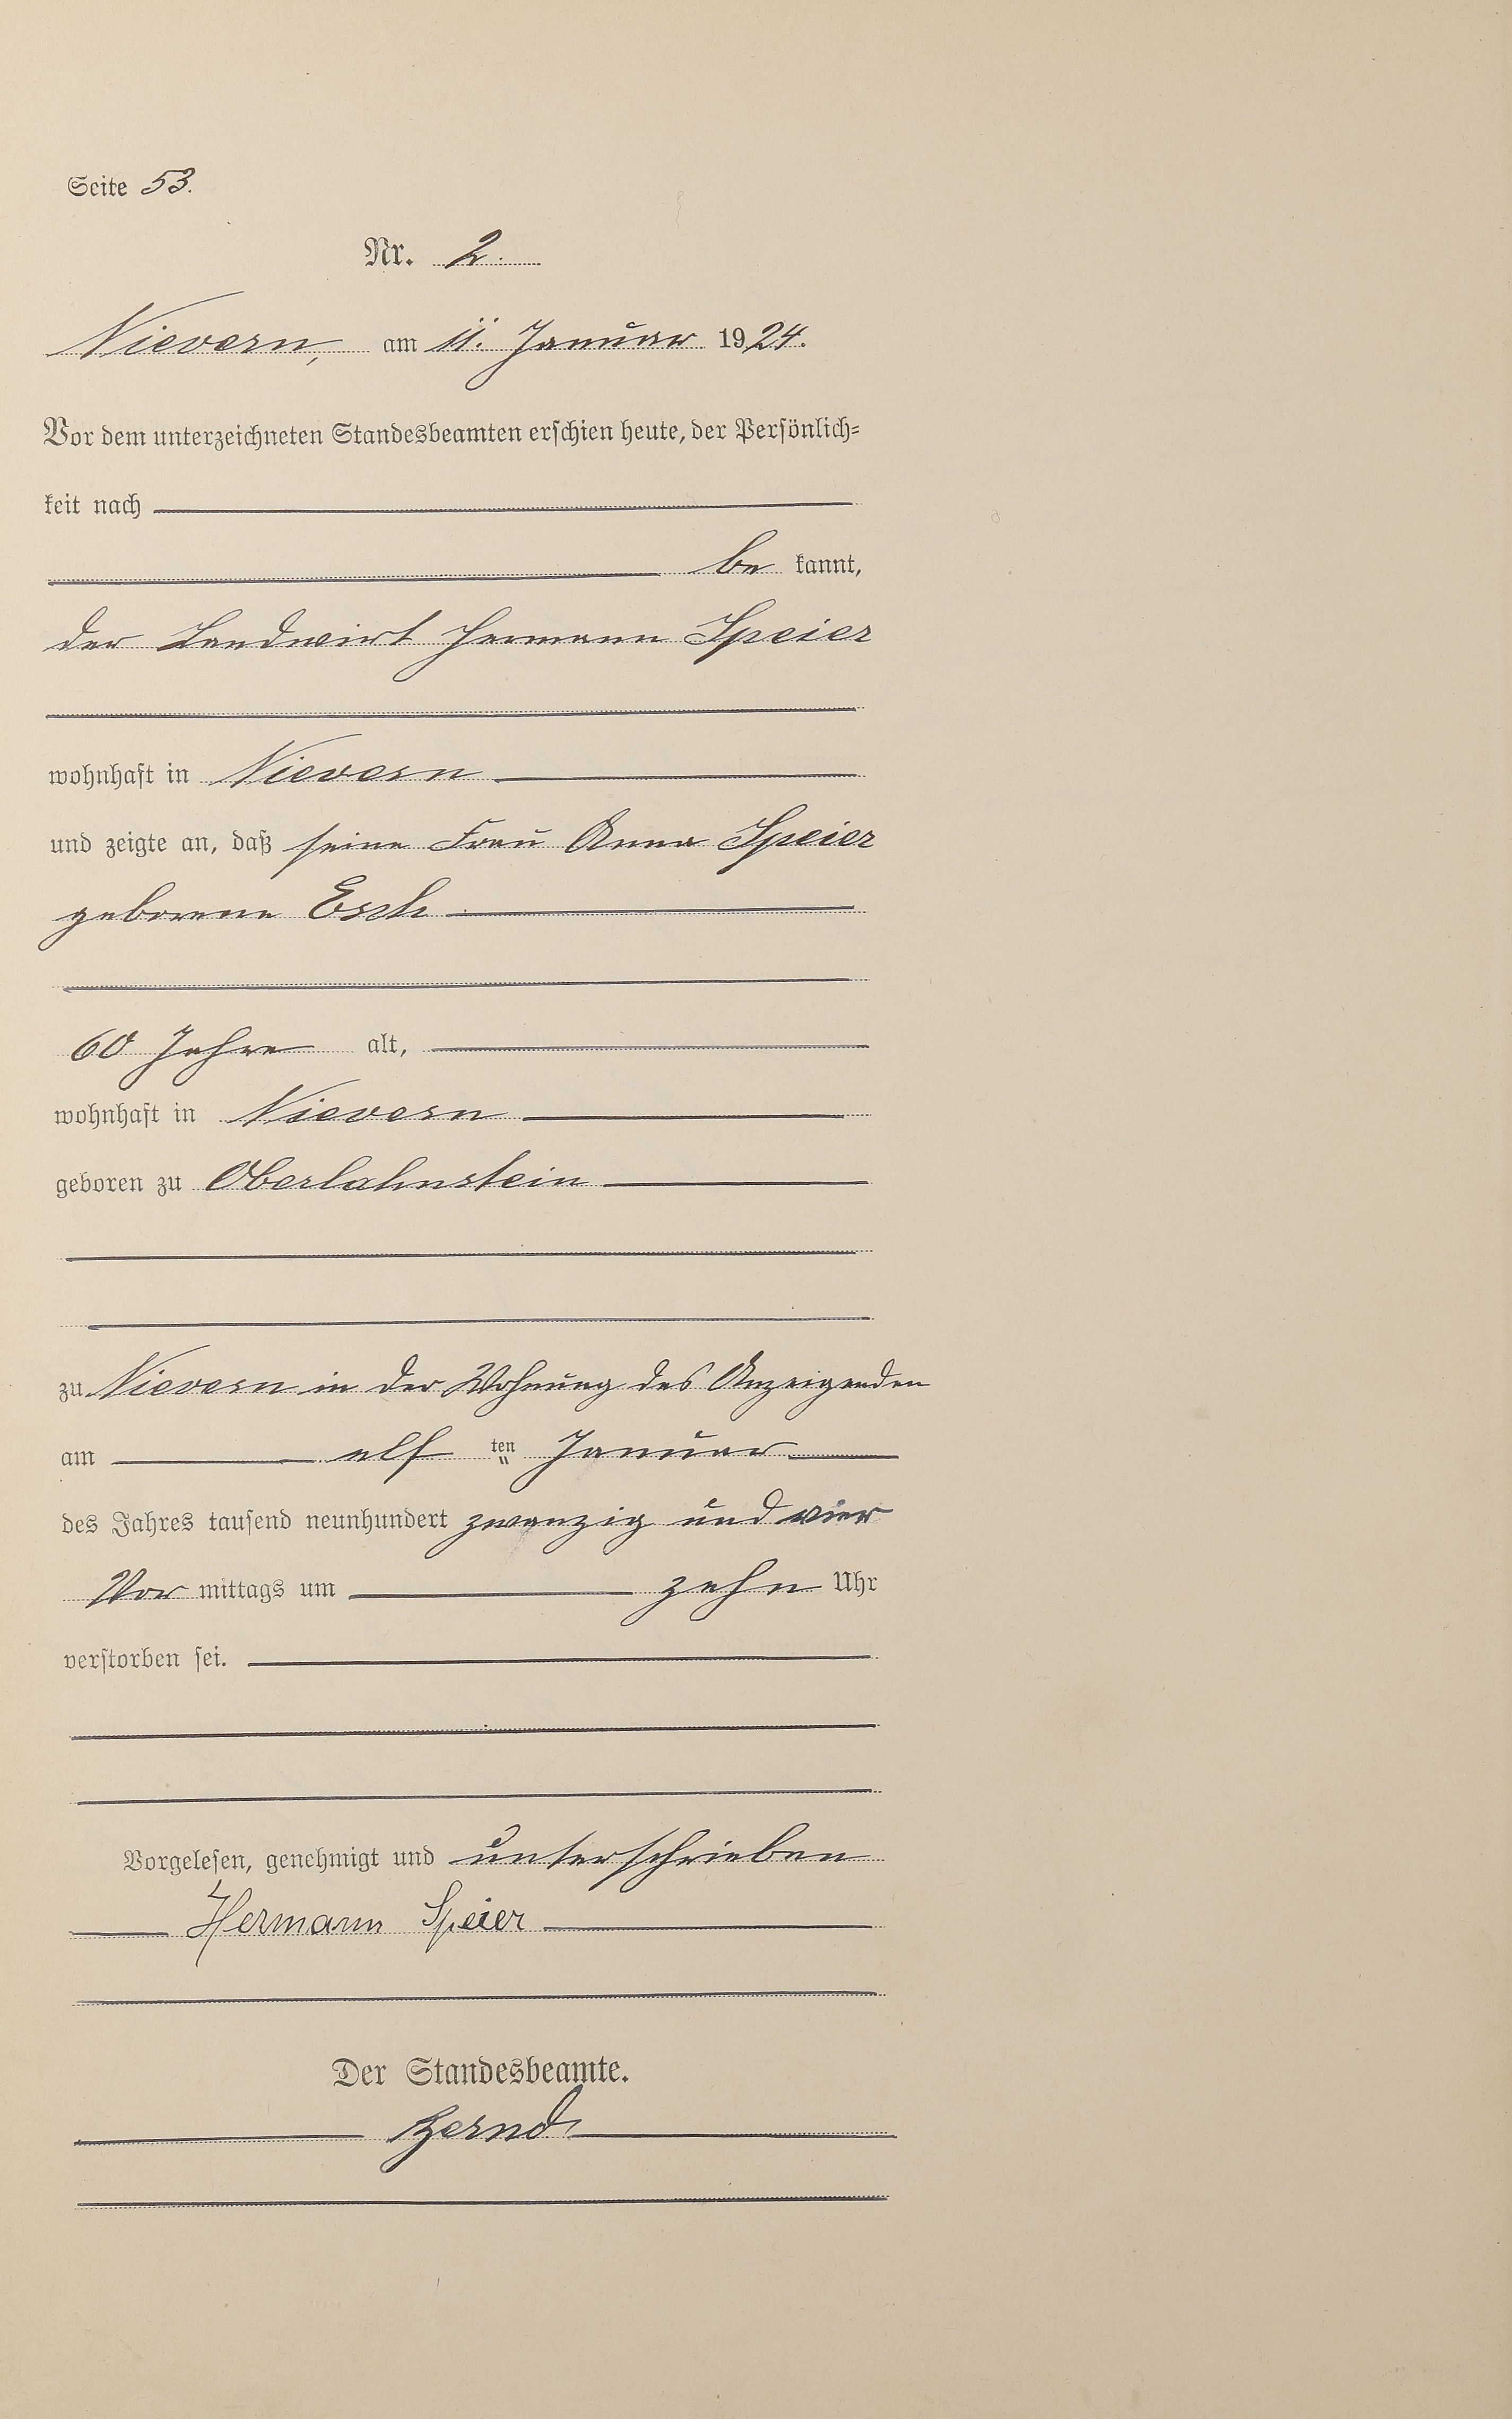 Seite 53.
Nr. 2.
Nievern, am 11. Januar 1924.
Vor dem unterzeichneten Standesbeamten erschien heute, der Persönlich-
keit nach
be kannt,
der Landwirt Hermann Speier
wohnhaft in Nievern
und zeigte an, daß seine Frau Anna Speier
geborene Esch
60 Jahre alt,
wohnhaft in Nievern
geboren zu Oberlahnstein
zu Nievern in der Wohnung des Anzeigenden
am elf ten Januar
des Jahres tausend neunhundert zwanzig und vier
Vor mittags um zehn Uhr
verstorben sei.
Vorgelesen, genehmigt und unterschrieben
Hermann Speier
Der Standesbeamte.